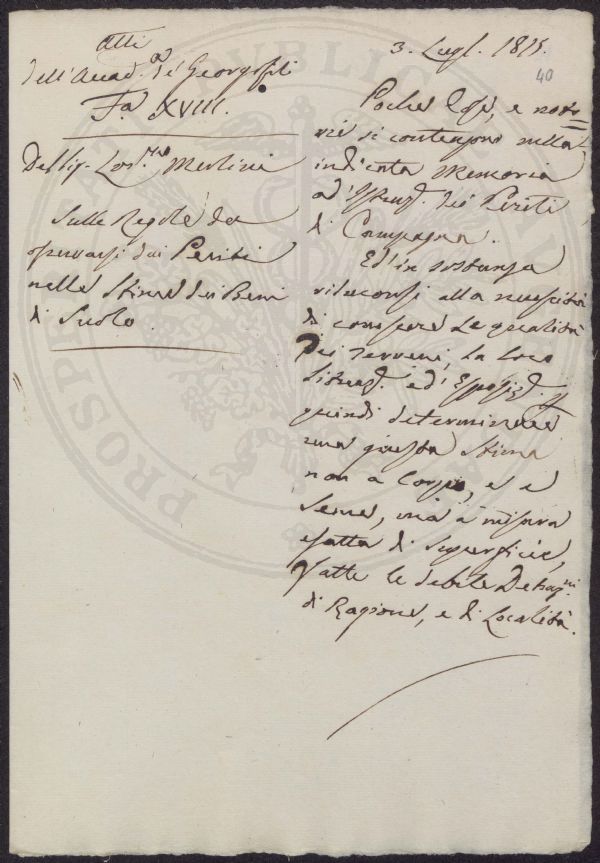 Atti
dell'Accad.ª de' Georgofili
Fa. XVIII.
Del Sig. Mertini
Sulle Regole da
osservarsi dai Periti
nelle Stime dei Beni
di Suolo.
3. Lugl. 1815.
40
Poche Cose, e noto=
rie si contengono nella
indicata Memoria
ad Istruz. dei Periti
di Campagna.
Ed in sostanza
riduconsi alla necessità
di conoscere le qualità
dei terreni, la loro
ed' Esposiz.
quindi determinare
una giusta Stima
non a Corpo, e a
Seme, mà a misura
esatta di Superficie,
fatte le debite Detraz.ni
di Ragione, e di Località.
PROSPERITATI PUBLICAE AUGENDAE